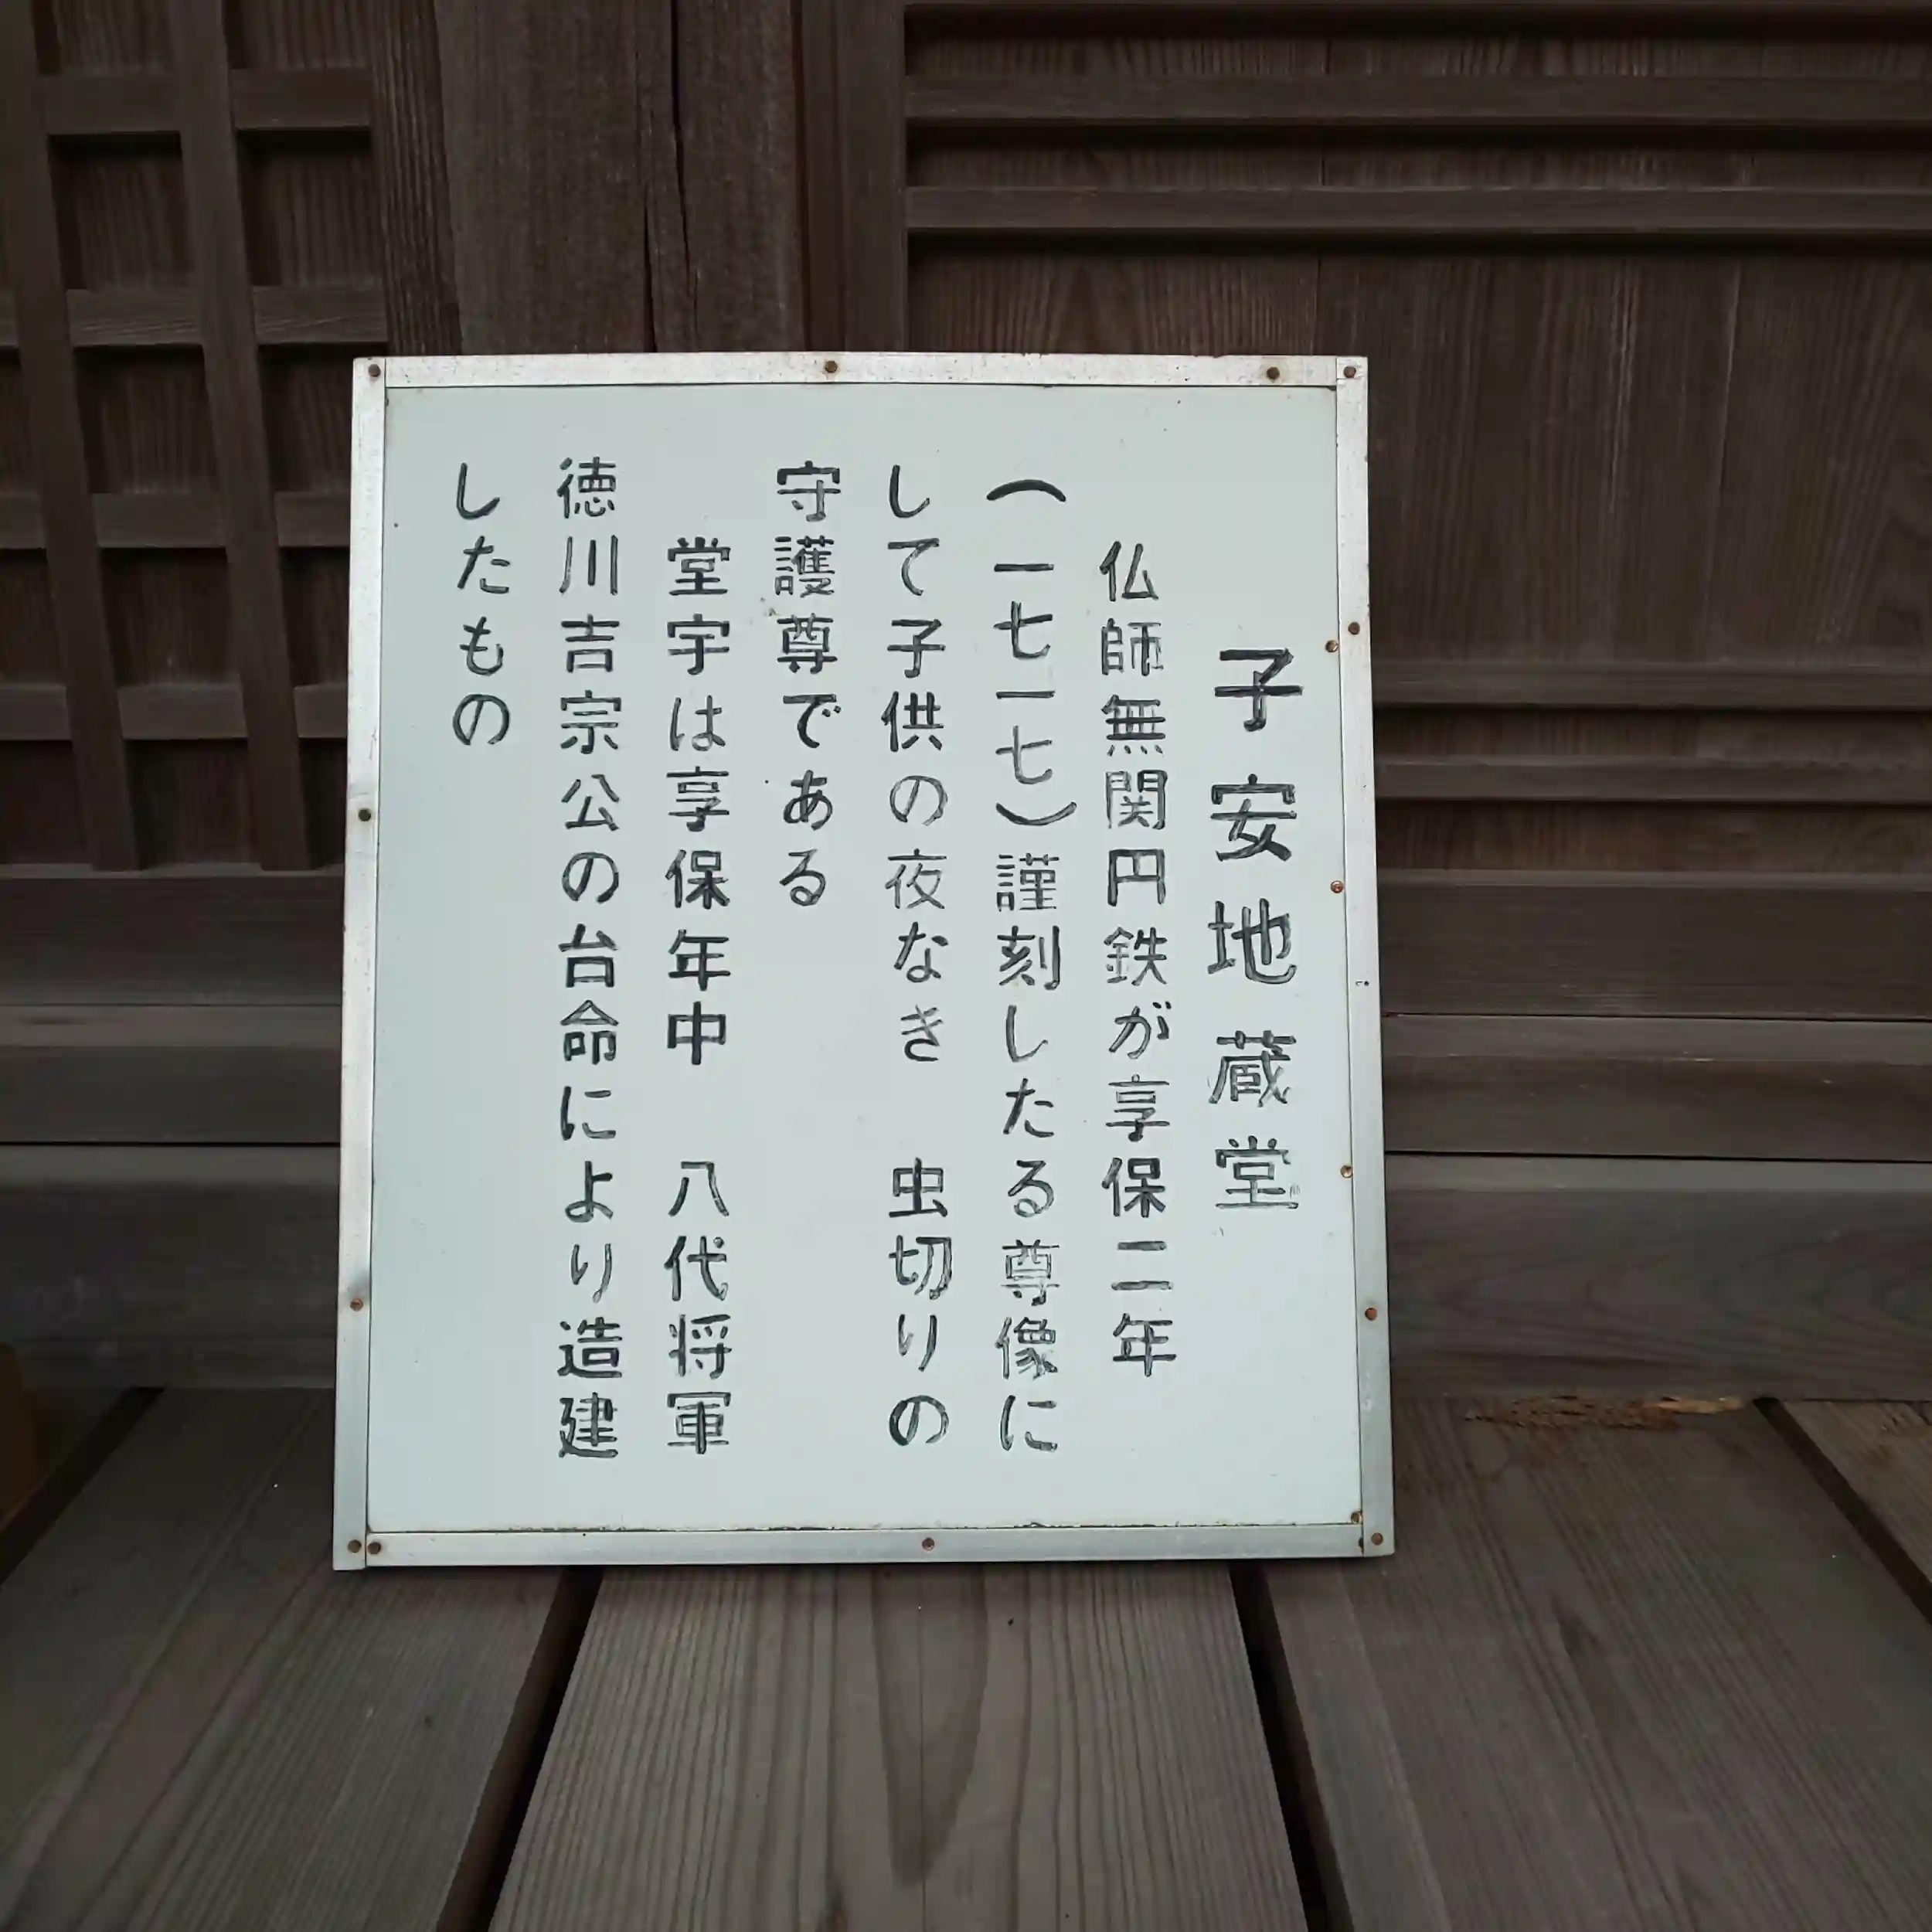 子安地蔵堂
仏師無関円鉄が享保二年
(一七一七)謹刻したる尊像に
して子供の夜なき　虫切りの
守護尊である
堂宇は享保年中　八代将軍
徳川吉宗公の台命により造建
したもの